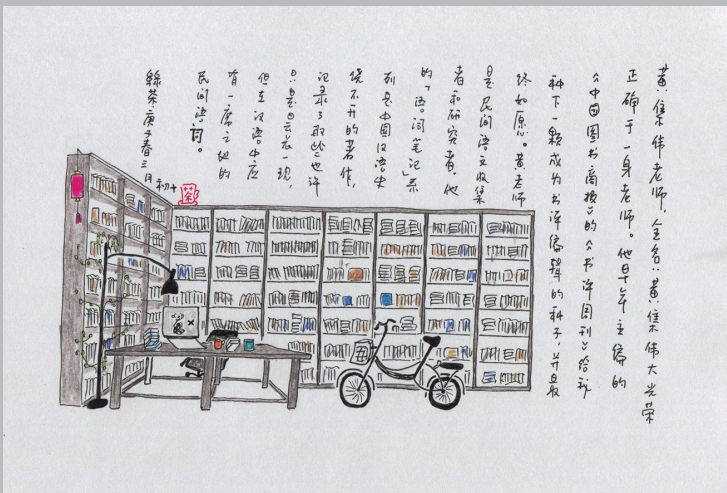 黄集伟老师,全名:黄集伟大光荣
正确于一身老师。他早年主编的
《中国图书商报》的《书评周刊》给我
种下一颗成为书评编辑的种子,并最
终如愿。黄老师
是民间语文收集
者和研究者,他
的“语词笔记”系
列是中国汉语史
绕不开的著作,
记录了那些也许
只是昙花一现,
但在汉语中应
有一席之地的
民间语词。
绿茶庚子春三月初十
茶